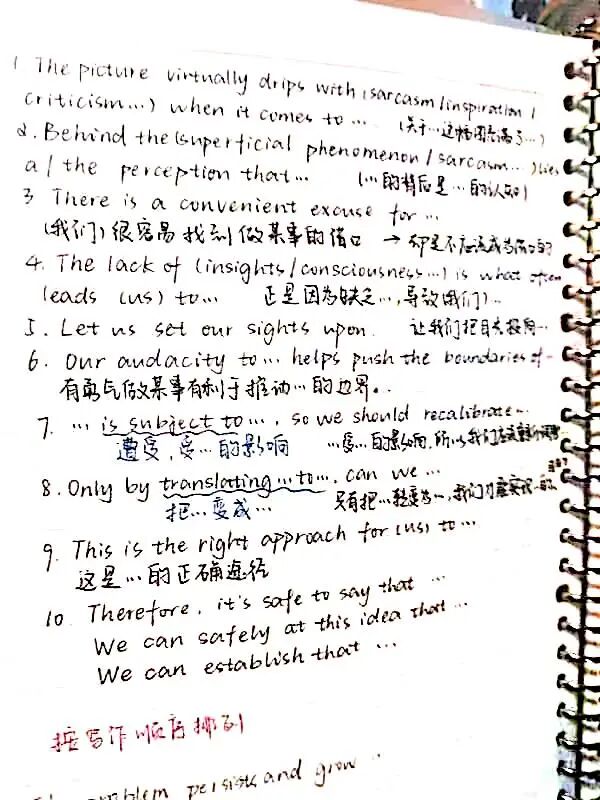 1 The picture virtually drips with (sarcasm/inspiration/
criticism...) when it comes to ... (关于...这幅图充满了...)
2. Behind the (superficial phenomenon/sarcasm...) lies
a/the perception that... (...的背后是...的认知)
3 There is a convenient excuse for ...
(我们)很容易找到做某事的借口 → 却是不应该成为借口的
4. The lack of (insights/consciousness...) is what often
leads (us) to... 正是因为缺乏...,导致(我们)...
5. Let us set our sights upon. 让我们把目光投向...
6. Our audacity to... helps push the boundaries of...
有勇气做某事有利于推动...的边界。
7. ... is subject to..., so we should recalibrate...
遭受,受...的影响 ...受...的影响,所以我们应该重新
8. Only by translating...to..., can we ...
把...变成... 只有把...转变为...,我们才能实现...的
9. This is the right approach for (us) to...
这是...的正确途径
10. Therefore, it's safe to say that ...
We can safely at this idea that ...
We can establish that ...
按写作顺序排列
problem persists and grow ...